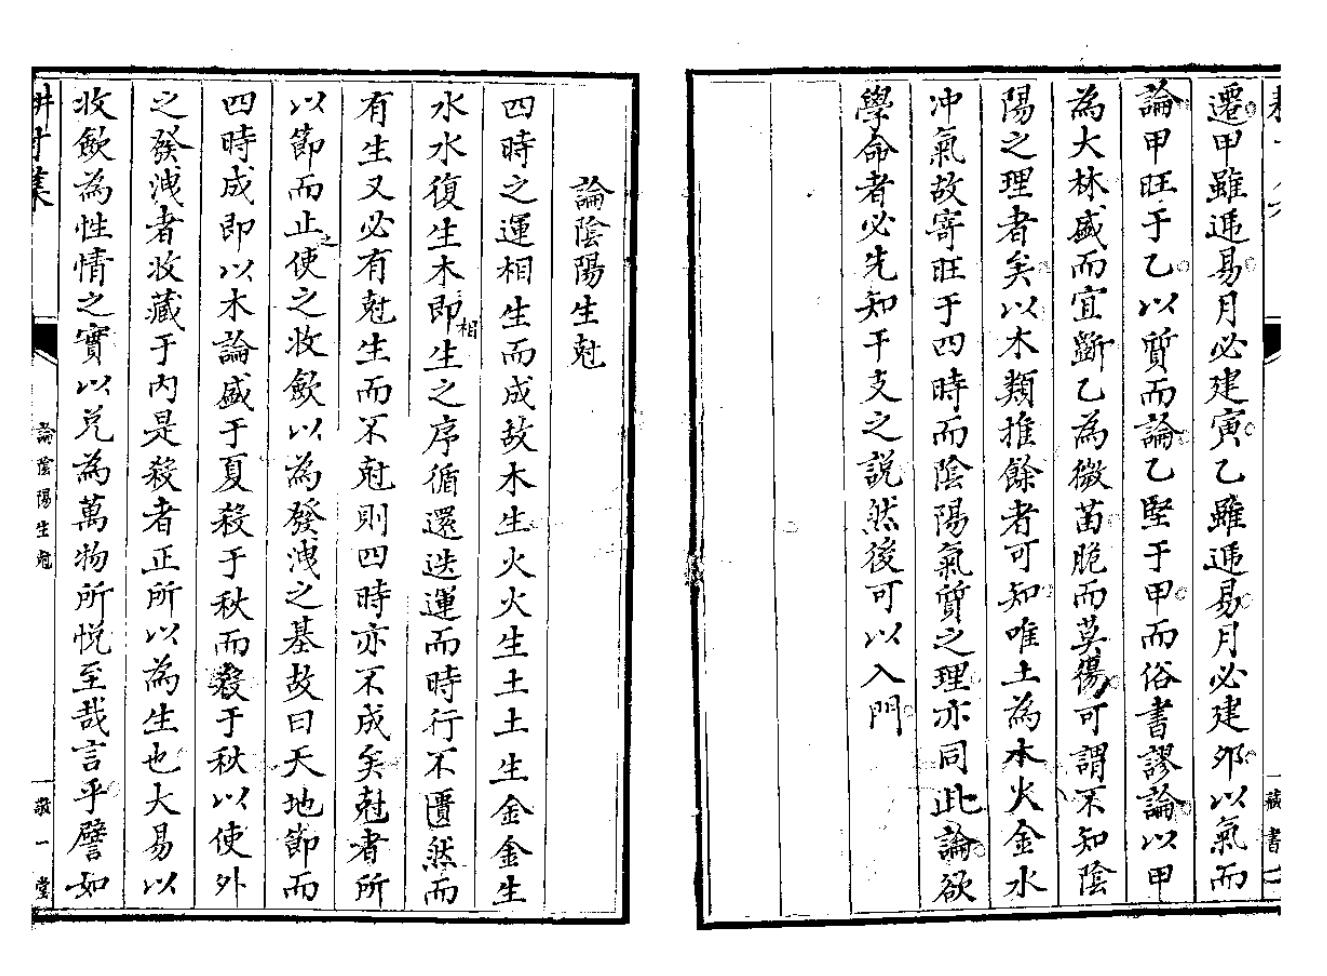 遷甲雖遞易月必建寅乙雖遞易月必建夘以氣而
論甲旺于乙以質而論乙堅于甲而俗書謬論以甲
為大林盛而宜斷乙為微苗脆而莫傷可謂不知陰
陽之理者矣以木類推餘者可知唯土為木火金水
冲氣故寄旺于四時而陰陽氣質之理亦同此論欲
學命者必先知干支之說然後可以入門
藏書
論陰陽生尅
四時之運相生而成故木生火火生土土生金金生
水水復生木即相生之序循還迭運而時行不匱然而
有生又必有尅生而不尅則四時亦不成矣尅者所
以節而止之使之收歛以為發洩之基故曰天地節而
四時成即以木論盛于夏殺于秋而殺于秋以使外
之發洩者收藏于內是殺者正所以為生也大易以
收歛為性情之實以兌為萬物所悅至哉言乎譬如
耕寸集
論陰陽生尅
敬一堂